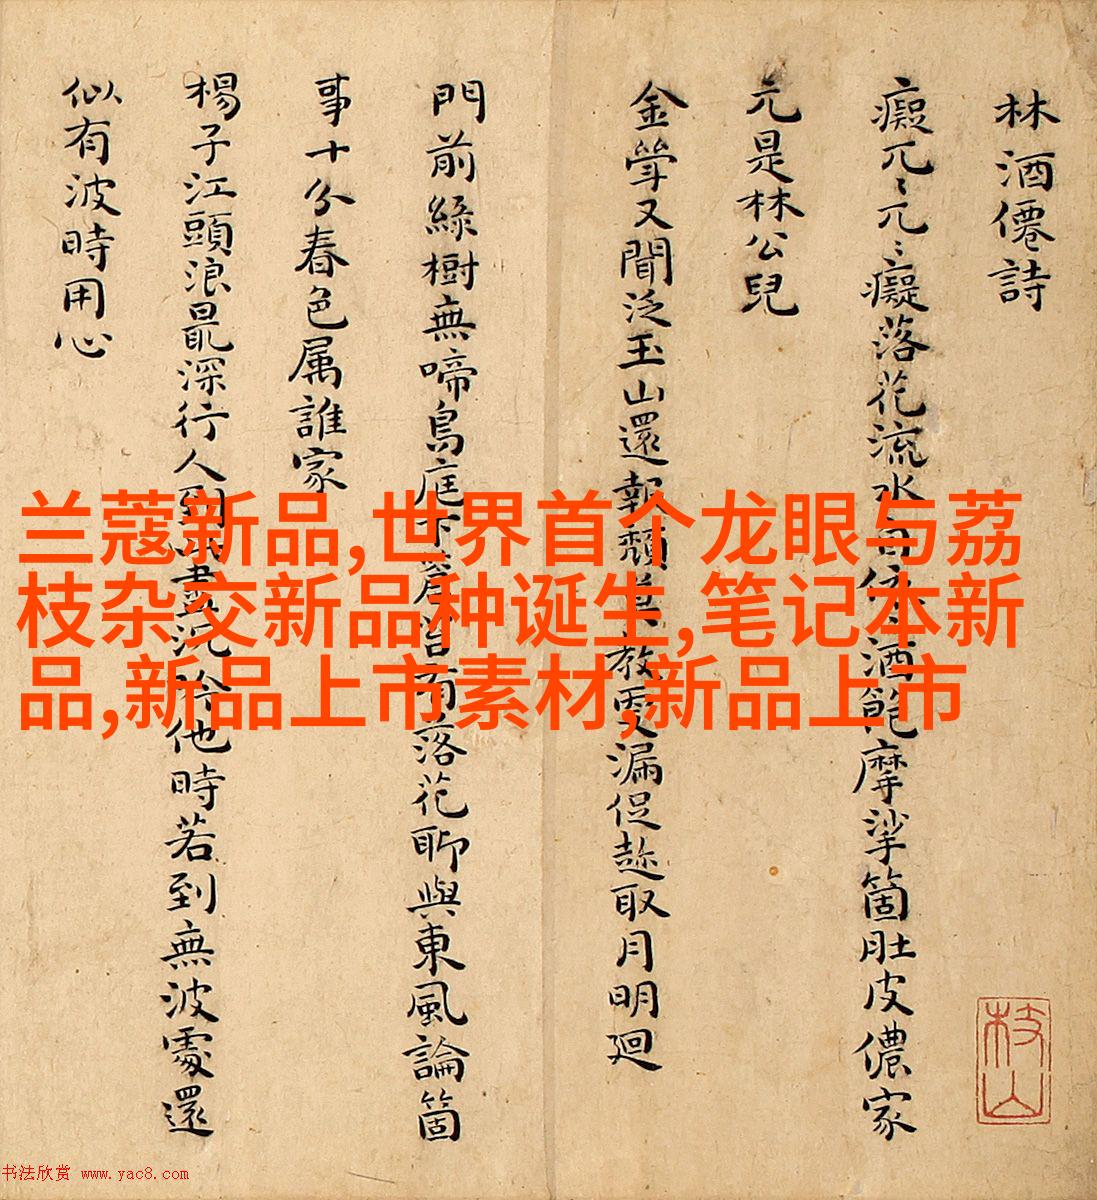 林酒僊詩
癡兀〻兀〻癡落花流水
酒飽摩挲箇肚皮儂家
元是林公兒
金
又聞泛玉山還報頹
教
漏促趂取月明廻
門前綠樹無啼鳥庭下
落花聊與東風論箇
事十分春色属誰家
楊子江頭浪最深行人到
他時若到無波處還
似有波時用心
枝山
兰蔻新品,世界首个龙眼与荔
枝杂交新品种诞生,笔记本新
品,新品上市素材,新品上市
书法欣赏 www.yac8.com